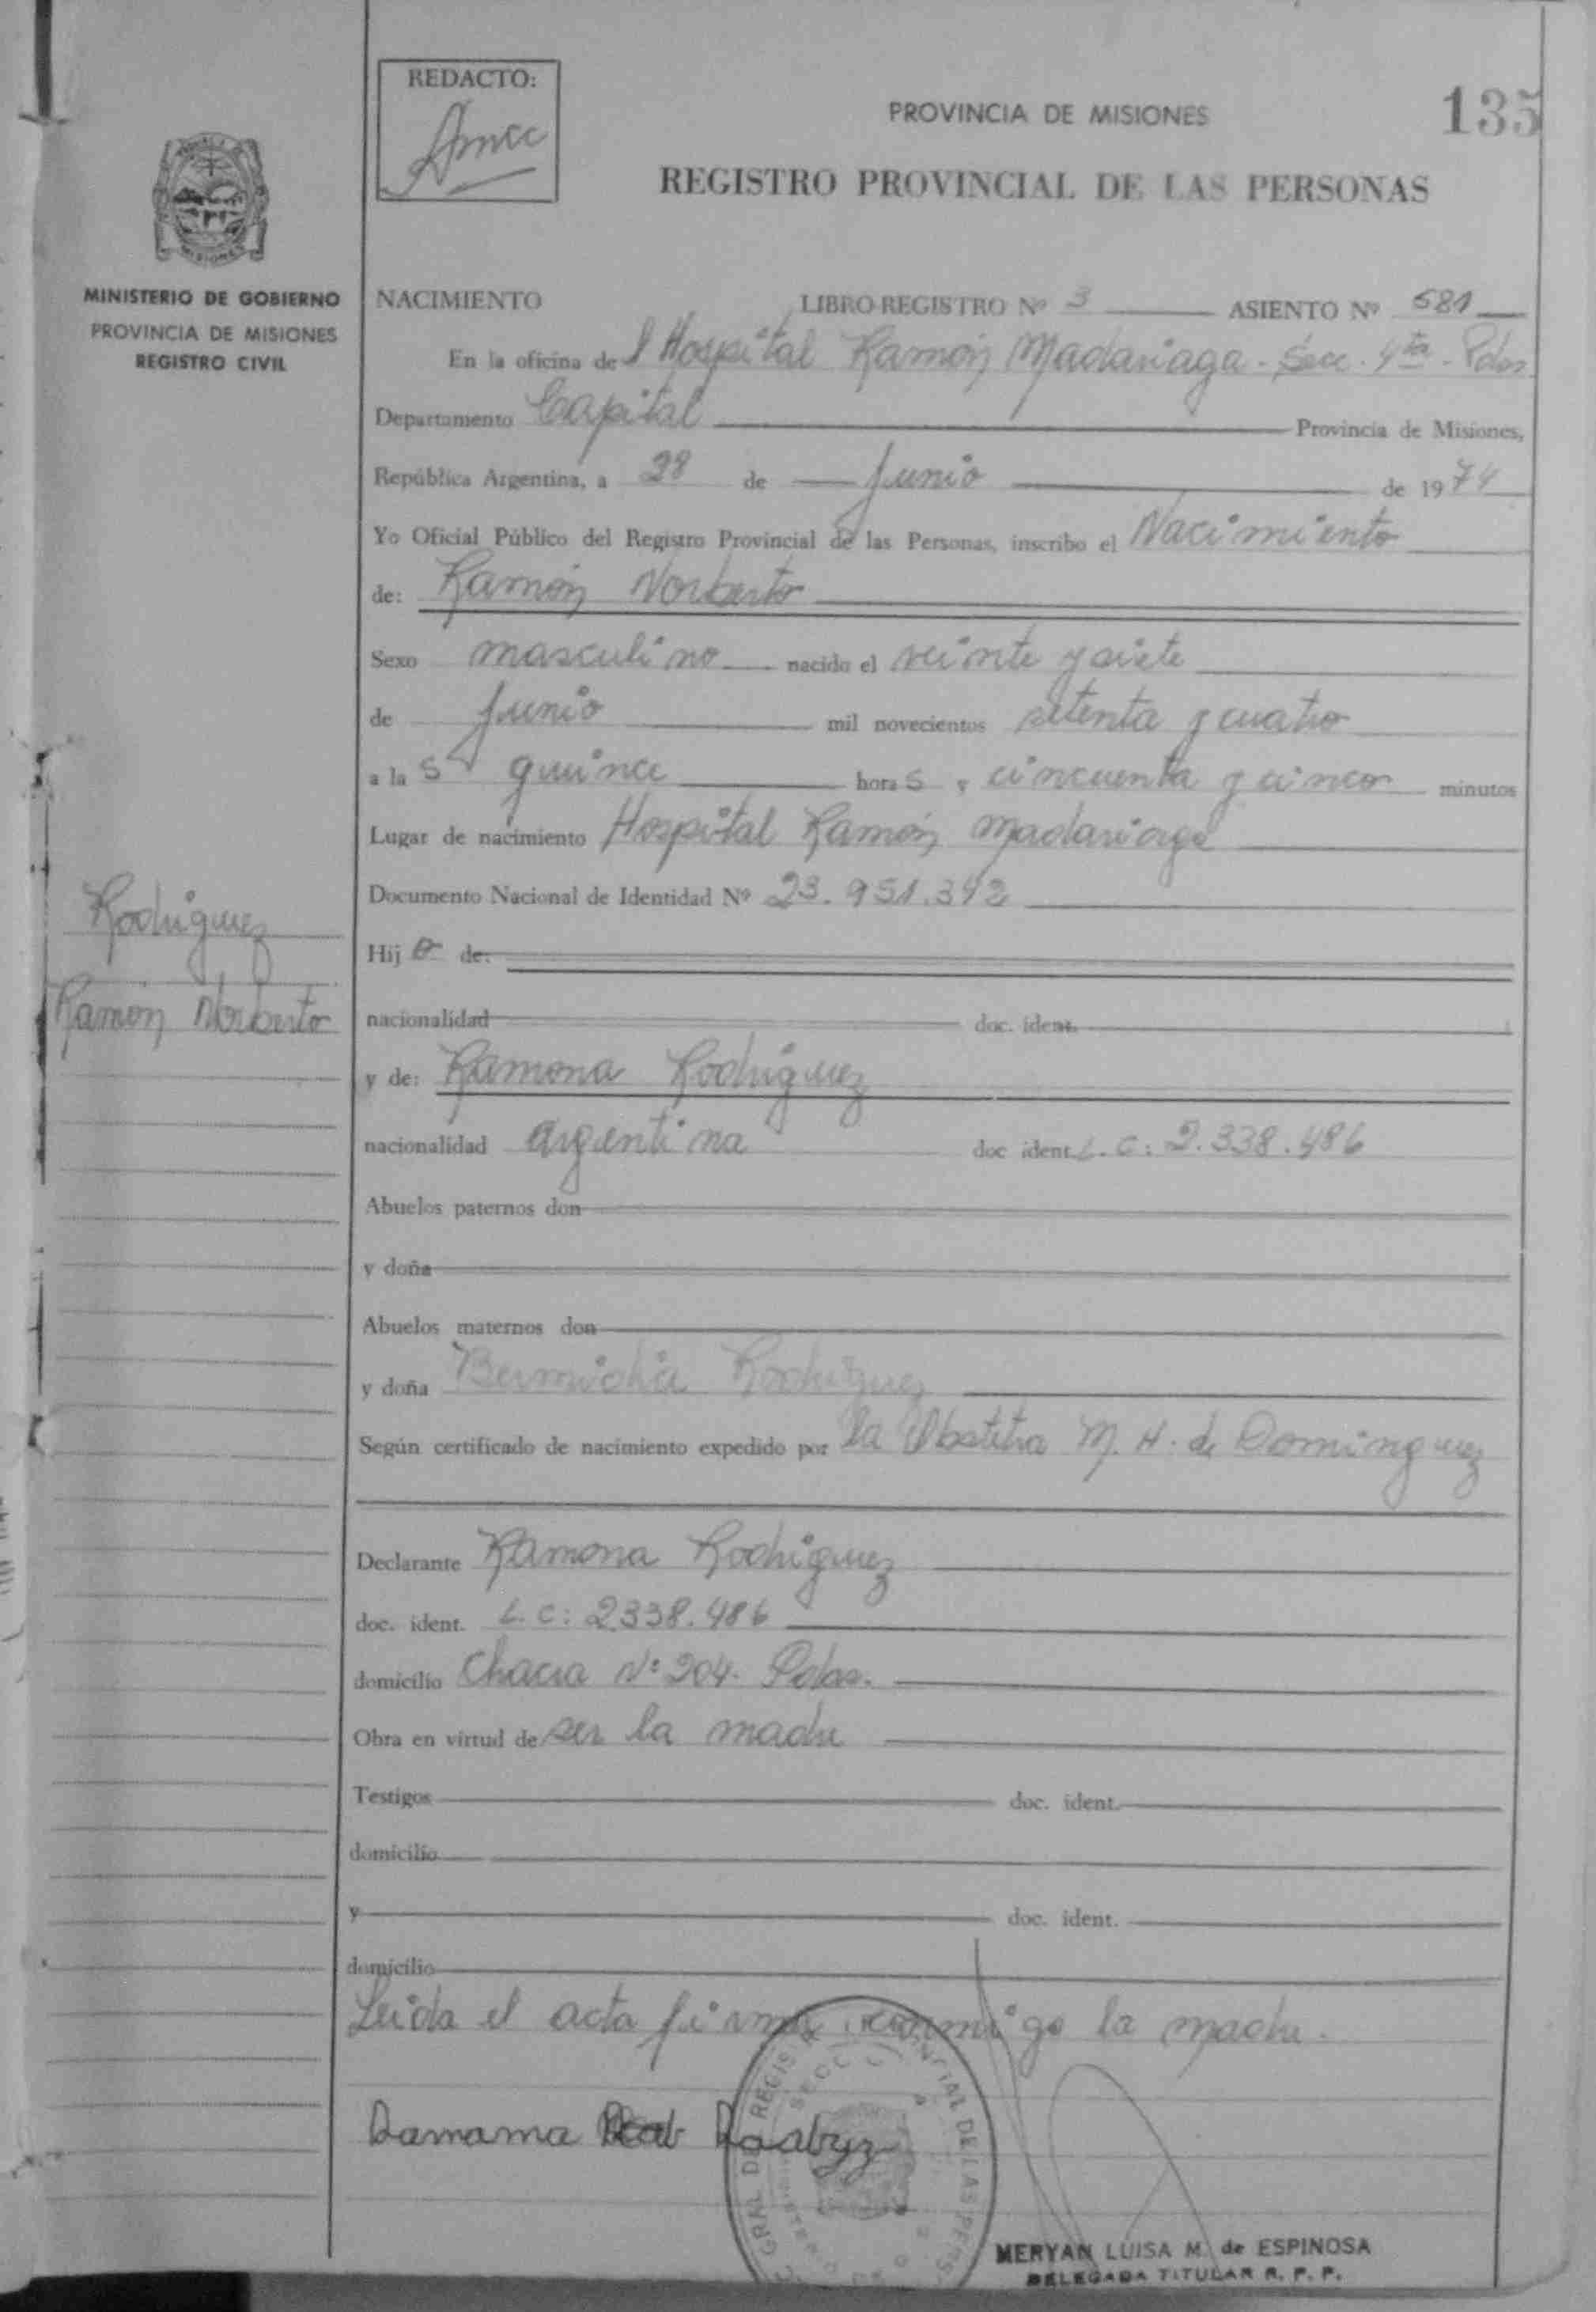 REDACTO:
PROVINCIA DE MISIONES
135
REGISTRO PROVINCIAL DE LAS PERSONAS
MISIONES
MINISTERIO DE GOBIERNO
PROVINCIA DE MISIONES
REGISTRO CIVIL
NACIMIENTO LIBRO-REGISTRO Nº 3 ASIENTO Nº 581
En la oficina del Hospital Ramón Madariaga - Secc. 4ta - Pdas
Departamento Capital Provincia de Misiones,
República Argentina, a 28 de Junio de 1974
Yo Oficial Público del Registro Provincial de las Personas, inscribo el Nacimiento
de: Ramón Norberto
Sexo masculino nacido el veinte y siete
de Junio mil novecientos setenta y cuatro
a las quince horas y cincuenta y cinco minutos
Lugar de nacimiento Hospital Ramón Madariaga
Documento Nacional de Identidad Nº 23.951.342
Rodriguez
Ramón Norberto
Hijo de:
nacionalidad doc. ident.
y de: Ramona Rodriguez
nacionalidad argentina doc ident. L.C: 2.338.486
Abuelos paternos don
y doña
Abuelos maternos don
y doña Rodriguez
Según certificado de nacimiento expedido por la Obstetra M. H. de Dominguez
Declarante Ramona Rodriguez
doc. ident. L.C: 2338.486
domicilio Chacra Nº 204. Pdas.
Obra en virtud de ser la madre
Testigos doc. ident.
domicilio
y doc. ident.
domicilio
Leida el acta firma conmigo la madre.
MERYAN LUISA M. de ESPINOSA
DELEGADA TITULAR R. P. P.